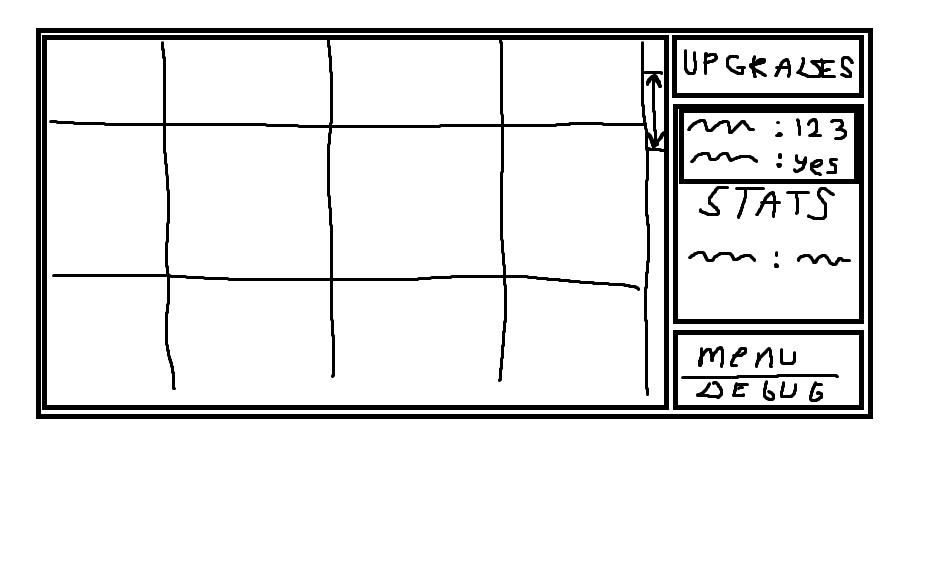 UPGRADES
: 123
: yes
STATS
:
MENU
DEBUG